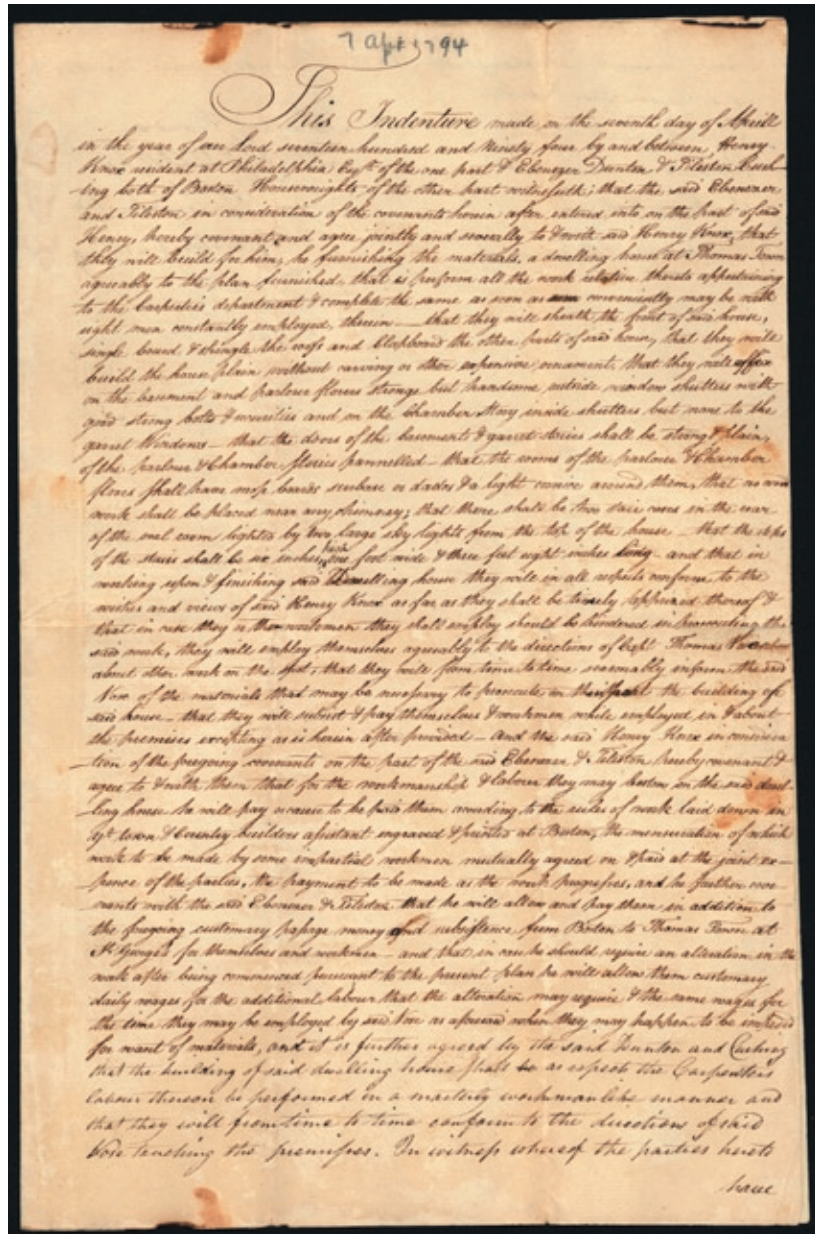 7 Apr 1794
This Indenture made on the seventh day of Aprill
in the year of our Lord seventeen hundred and Ninety four by and between Henry
Knox resident at Philadelphia Esqr. of the one part & Ebenezer Dunton & Tileston Cush-
ing both of Boston Housewrights of the other part witnesseth; that the said Ebenezer
and Tileston in consideration of the covenants herein after entered into on the part of said
Henry, hereby covenant and agree jointly and severally to & with said Henry Knox, that
they will build for him, he furnishing the materials, a dwelling house at Thomas Town
agreeably to the plan furnished, that is perform all the work relative thereto appertaining
to the Carpenters department & complete the same as soon as conveniently may be with
eight men constantly employed therein — that they will sheath the front of said house,
single board & shingle the roofs and Clapboard the other parts of said house, that they will
build the house plain without carving or other expensive ornament, that they will affix
on the basement and parlour floors strong but handsome outside window shutters with
good strong bolts & securities and on the Chamber Story inside shutters but none to the
garret Windows — that the doors of the basement & garret stories shall be strong & plain,
of the parlour & Chamber stories pannelled — that the rooms of the parlour & Chamber
floors shall have mop boards surbase or dados & a light cornice around them, that no wood
work shall be placed near any chimney; that there shall be two stair cases in the rear
of the oval room lighted by two large sky lights from the top of the house — that the steps
of the stairs shall be six inches one foot wide & three feet eight inches long — and that in
working upon & finishing said Dwelling house they will in all respects conform to the
wishes and views of said Henry Knox as far as they shall be timely apprised thereof &
that in case they or the workmen they shall employ should be hindered in prosecuting the
said work, they will employ themselves agreeably to the directions of Capt Thomas Vose
about other work on the spot, that they will from time to time seasonably inform the said
Vose of the materials that may be necessary to prosecute in the building of
said house — that they will subsist & pay themselves & workmen while employed in & about
the premises excepting as is herein after provided — And the said Henry Knox in considera-
tion of the foregoing covenants on the part of the said Ebenezer & Tileston hereby covenant &
agree to & with them that for the workmanship & labour they may bestow on the said dwel-
-ling house he will pay or cause to be paid them according to the rules of work laid down in
town & Country builders assistant engraved & printed at Boston, the mensuration of which
work to be made by some impartial workmen mutually agreed on & paid at the joint ex-
-pence of the parties, the payment to be made as the work progresses, and he further cove-
-nants with the said Ebenezer & Tileston that he will allow and pay them in addition to
the foregoing customary passage money and subsistence from Boston to Thomas Town at
St Georges for themselves and workmen — and that in case he should require an alteration in the
work after being commenced pursuant to the present plan he will allow them customary
daily wages for the additional labour that the alteration may require & the same wages for
the time they may be employed by said Vose as aforesaid when they may happen to be impeded
for want of materials, and it is further agreed by the said Dunton and Cushing
that the building of said dwelling house shall as respects the Carpenters
labour thereon be performed in a masterly workmanlike manner and
that they will from time to time conform to the directions of said
Vose touching the premisses. In witness whereof the parties hereto
have